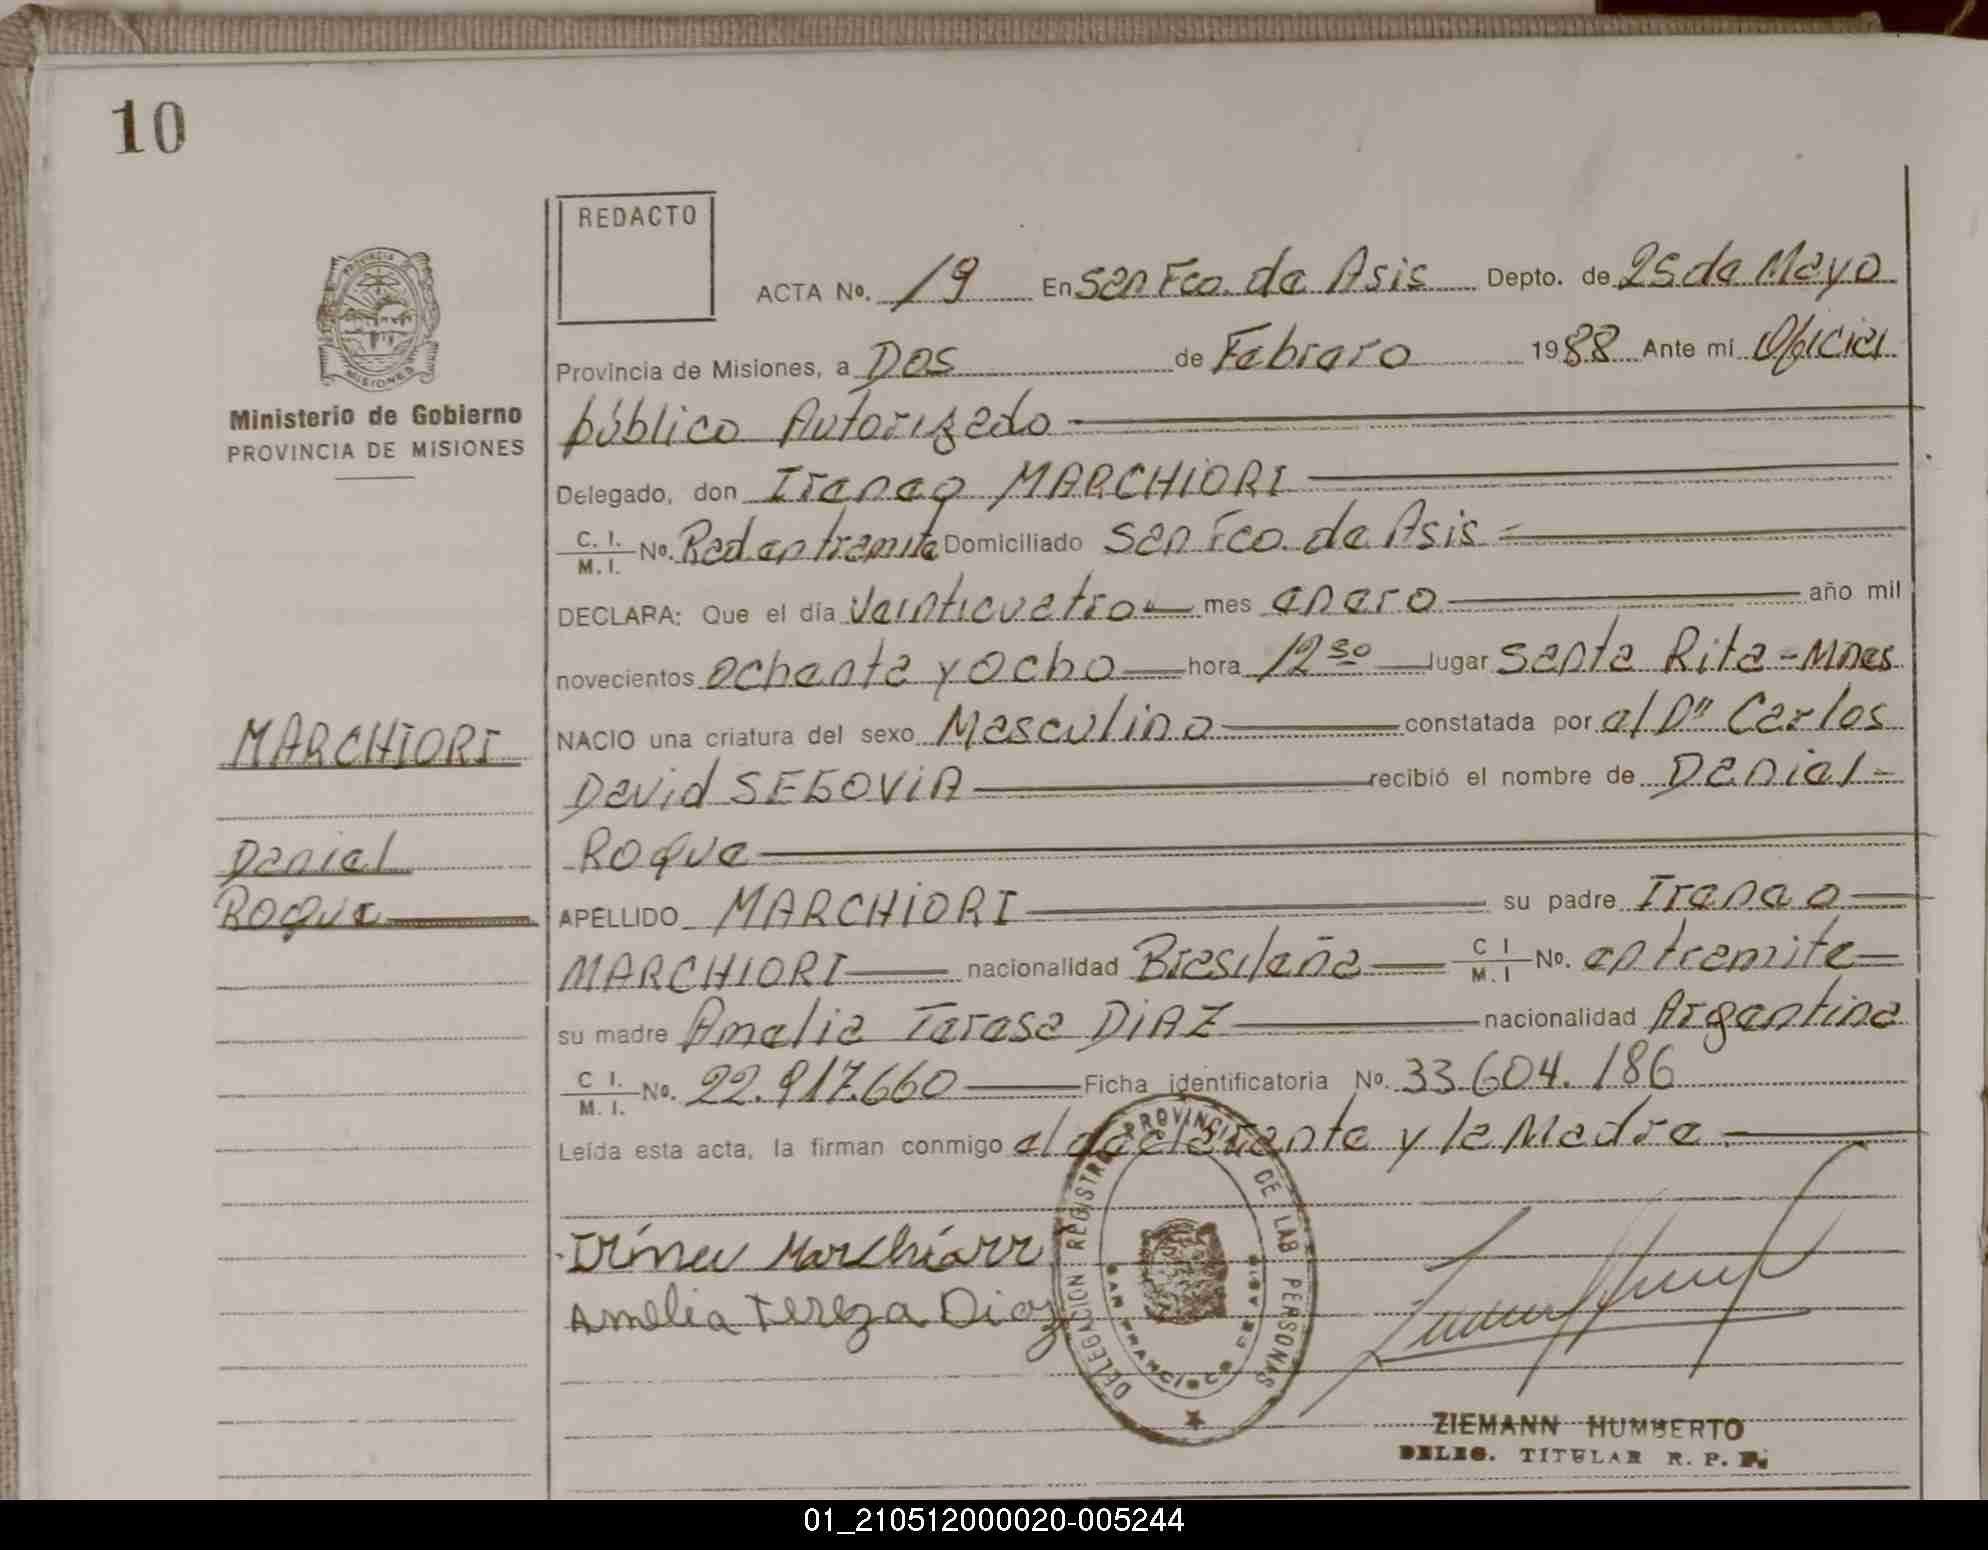 10
REDACTO
ACTA No. 19 En San Fco. de Asis Depto. de 25 de Mayo
Provincia de Misiones, a Dos de Febrero 1988 Ante mi Oficial
público Autorizado
Delegado, don Ireneo MARCHIORI
C. I. / M. I. No. Red en tramite Domiciliado San Fco. de Asis
DECLARA: Que el día veinticuatro mes enero año mil
novecientos ochenta y ocho hora 12 30 lugar Santa Rita - Mnes
NACIO una criatura del sexo Masculino constatada por el Dr Carlos
David SEGOVIA recibió el nombre de Daniel -
Roque
APELLIDO MARCHIORI su padre Ireneo
MARCHIORI nacionalidad Brasileña C I / M. I No. en tramite
su madre Amelia Teresa DIAZ nacionalidad Argentina
C I. / M. I. No. 22.917.660 Ficha identificatoria No. 33.604.186
Leída esta acta, la firman conmigo el declarante y la Madre.
PROVINCIA
MISIONES
Ministerio de Gobierno
PROVINCIA DE MISIONES
MARCHIORI
Daniel
Roque
Amelia Tereza Diaz
DELEGACION REGISTRO PROVINCIAL DE LAS PERSONAS
SAN FRANCISCO DE ASIS
ZIEMANN HUMBERTO
DELEG. TITULAR R. P. P.
01_210512000020-005244